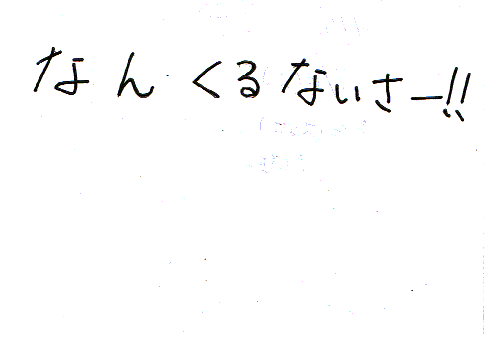 なんくるないさー!!